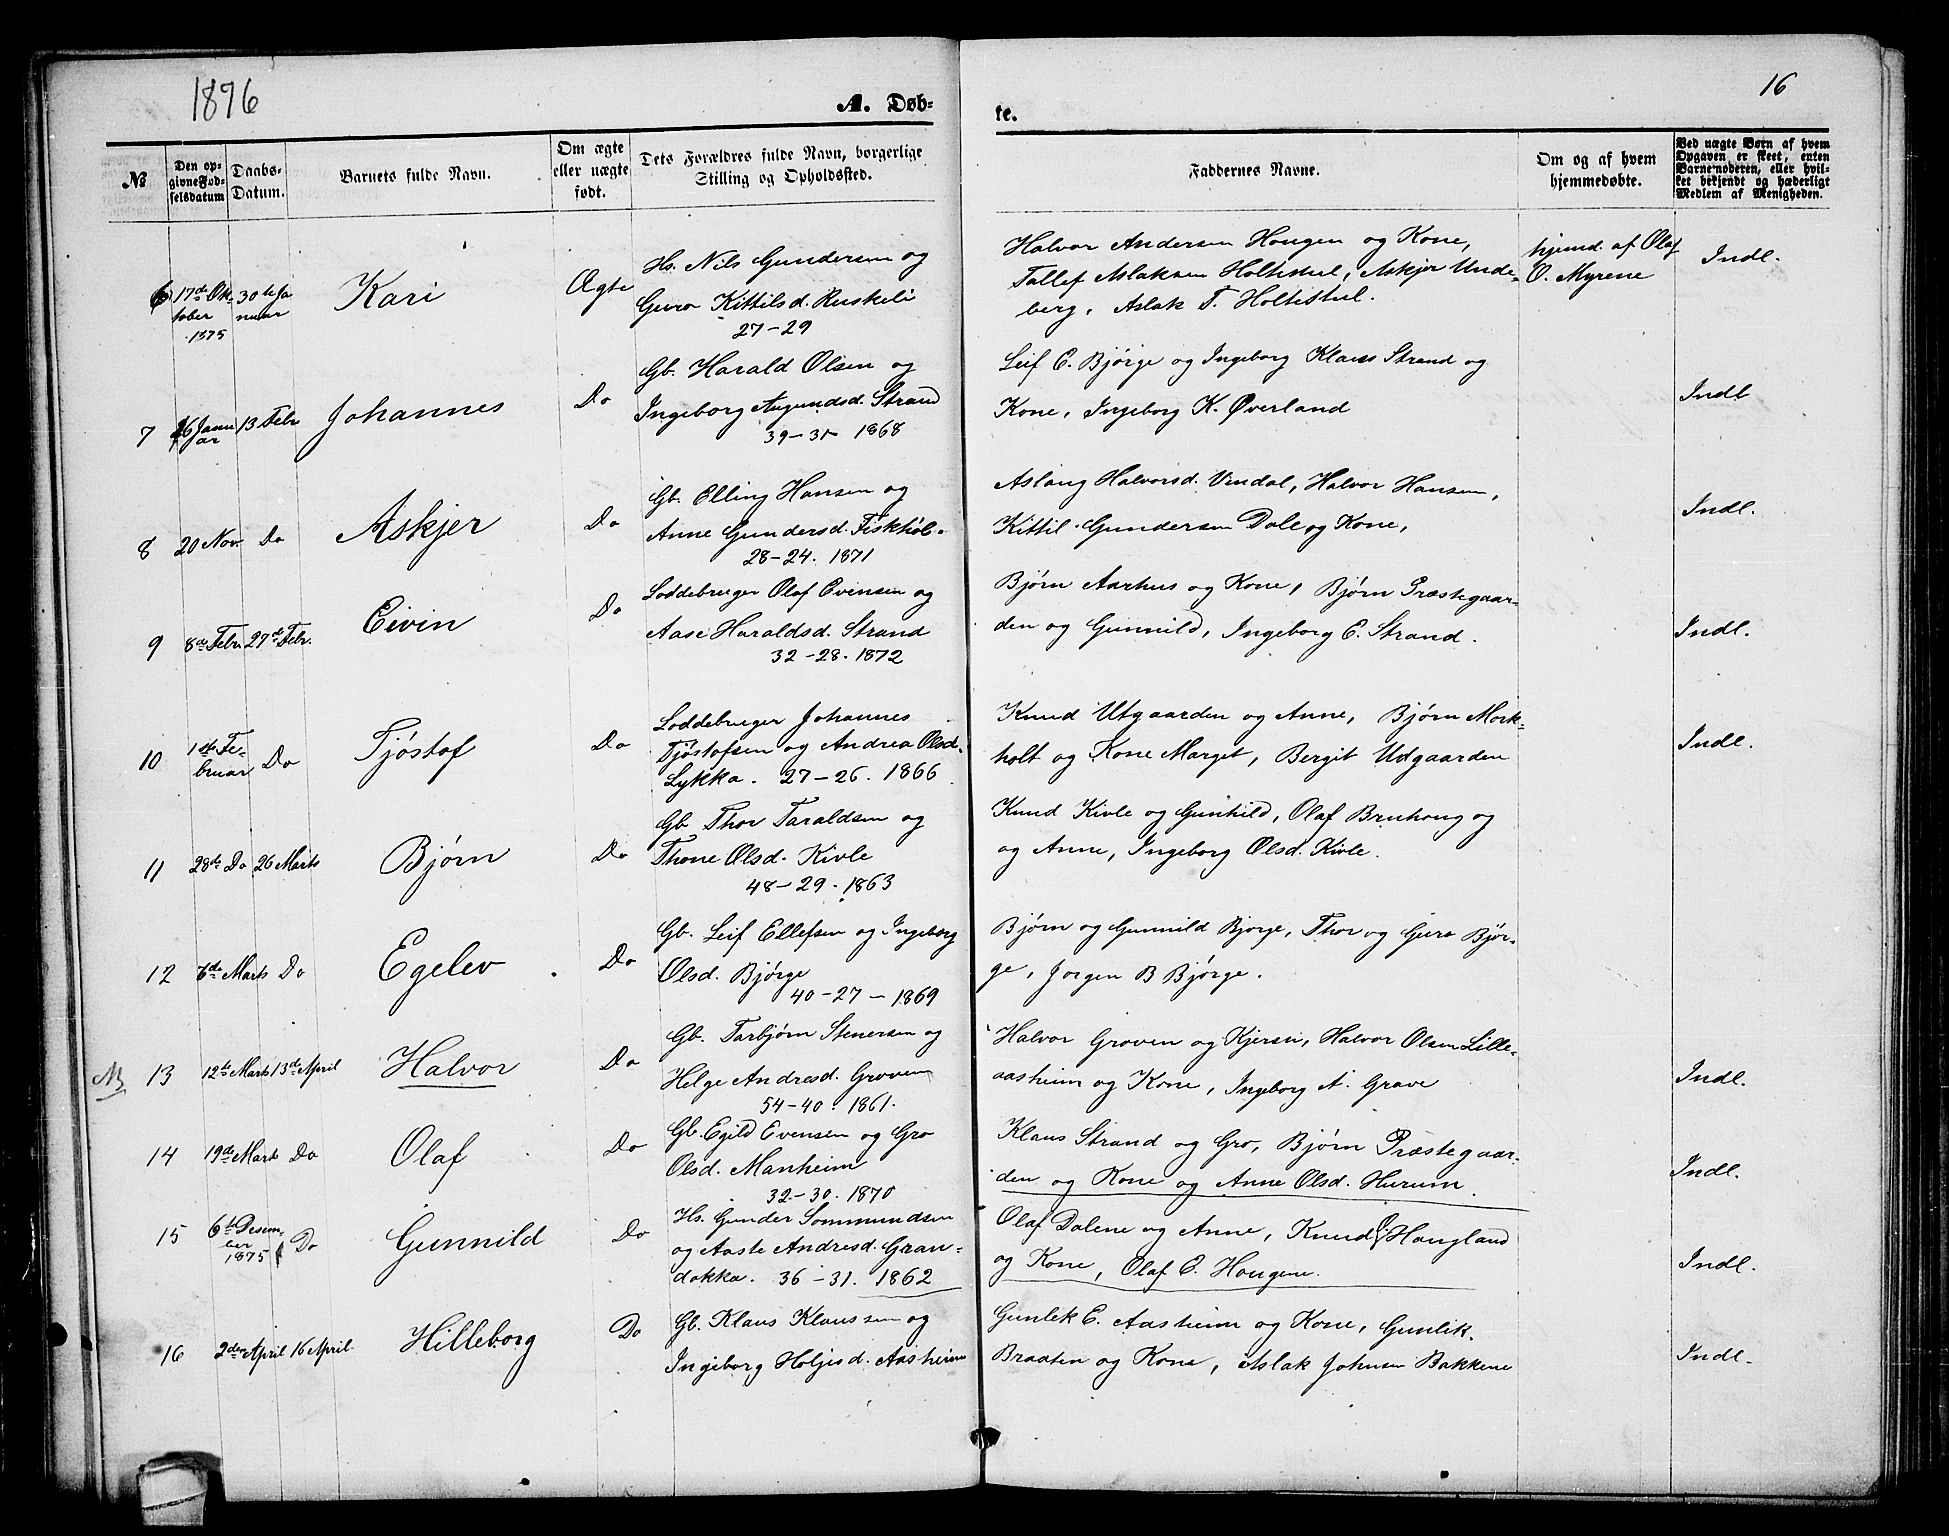 1876
16
A. Døb-
te.
№
Den op-
givne Fød-
selsdatum
Daabs-
Datum.
Barnets fulde Navn.
Om ægte
eller uægte
født.
Dets Forældres fulde Navn, borgerlige
Stilling og Opholdssted.
Faddernes Navne.
Om og af hvem
hjemmedøbte.
Ved uægte Børn af hvem
Opgaven er skeet, enten
Barnemoderen, eller hvil-
ket bekjendt og hæderligt
Medlem af Menigheden.
6 17de Ok-
tober
1875
30te Ja
nuar
Kari
Ægte
Hs. Nils Gundersen og
Guro Kittilsd. Ruskeli
27-29
Halvor Andersen Hougen og Kone,
Tallef Aslaksen Holtestul, Askjer Unde-
berg, Aslak T. Holtestul.
hjemd. af Olaf
O. Myrene
Indl.
7 16 Janu
ar
13 Febr
Johannes
Do
Gb. Harald Olsen og
Ingeborg Augundsd. Strand
39-31 1868
Leif E. Bjørge og Ingeborg Klaus Strand og
Kone, Ingeborg K. Øverland
Indl
8 20 Nov. Do
Askjer
Do
Gb. Elling Hansen og
Anne Gundersd. Fiskhøl.
28-24. 1871
Aslaug Halvorsd. Vindal, Halvor Hansen,
Kittil Gundersen Dale og Kone,
Indl.
9 8de Febr. 27de Febr.
Eivin
Do
Loddebruger Olaf Evensen og
Aase Haraldsd. Strand
32-28. 1872
Bjørn Aarhus og Kone, Bjørn Præstegaar-
den og Gunnild, Ingeborg E. Strand.
Indl.
10 1ste Fe-
bruar
Do
Tjøstof
Do
Loddebruger Johannes
Tjøstofsen og Andrea Olsd.
Lykka. 27-26. 1866
Knud Utgaarden og Anne, Bjørn Mork-
holt og Kone Marget, Bergit Udgaarden
Indl.
11 28de Do 26 Marts
Bjørn
Do
Gb Thor Taraldsen og
Thone Olsd. Kivle
48-29. 1863
Knud Kivle og Gunhild, Olaf Bruhoug og
og Anne, Ingeborg Olsd. Kivle.
12 6de Marts Do
Egelev
Do
Gb. Leif Ellefsen og Ingeborg
Olsd. Bjørge
40-27-1869
Bjørn og Gunnild Bjørge, Thor og Guro Bjør-
ge, Jørgen B Bjørge.
13 12te Marts 13de April
Halvor
Do
Gb. Tarbjørn Stenersen og
Helge Andresd. Groven
54-40. 1861.
Halvor Groven og Kjersti, Halvor Olsen Lille-
aasheim og Kone, Ingeborg A. Grave
Indl.
14 19de Marts Do
Olaf
Do
Gb. Egild Evensen og Gro
Olsd. Manheim
32-30. 1870
Klaus Strand og Gro, Bjørn Præstegaar-
den og Kone og Anne Olsd. Hurum.
Indl.
15 6te Desem
ber
1875
Do
Gunnild
Do
Hs. Gunder Sommundsen
og Aaste Andresd. Gran-
dokka. 36-31. 1862
Olaf Dalene og Anne, Knud O Haugland
og Kone, Olaf E. Hougene.
Indl.
16 2den April 16 April
Hilleborg
Do
Gb. Klaus Klaussen og
Ingeborg Holjesd. Aasheim
Gunlek E. Aasheim og Kone, Gunlik
Braaten og Kone, Aslak Johnsen Bakkene
Indl.